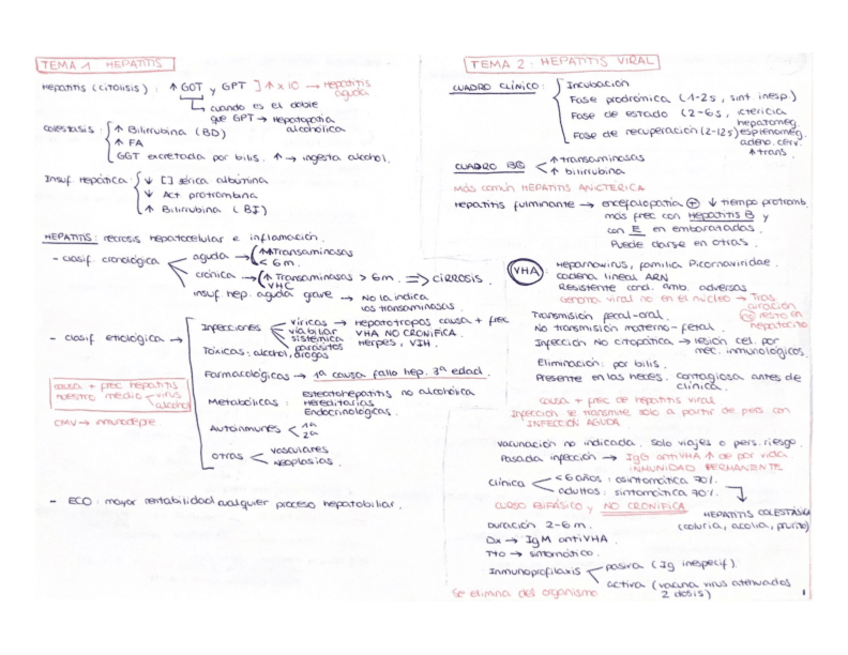 TEMA 1 HEPATITIS
Hepatitis (citolisis) : ↑ GOT y GPT ] ↑ x 10 → Hepatitis aguda
cuando es el doble
que GPT → Hepatopatía alcohólica
colestasis : ↑ Bilirrubina (BD)
↑ FA
GGT excretada por bilis. ↑ → ingesta alcohol.
Insuf hepática : ↓ [] sérica albúmina
↓ Act protrombina
↑ Bilirrubina (BI)
HEPATITIS : necrosis hepatocelular e inflamación.
- clasif cronológica
aguda → ↑↑ Transaminasas
< 6 m.
crónica → ↑ Transaminasas > 6 m. ⇒ CIRROSIS.
VHC
insuf hep. aguda grave → No la indica
las transaminasas.
- clasif etiológica →
Infecciones
víricas → hepatotropos causa + frec
vía biliar VHA NO CRONIFICA.
sistémica Herpes, VIH.
parásitos
Tóxicas : alcohol, drogas
Farmacológicas → 1ª causa fallo hep. 3ª edad.
Metabólicas :
Esteatohepatitis no alcohólica
Hereditarias
Endocrinológicas.
Autoinmunes
1ª
2ª
otras
vasculares
neoplasias.
causa + frec hepatitis
nuestro medio
virus
alcohol
CMV → inmunodepre.
- ECO : mayor rentabilidad cualquier proceso hepatobiliar.
TEMA 2 : HEPATITIS VIRAL
CUADRO CLÍNICO :
Incubación
Fase prodrómica (1-2s, sint inesp.)
Fase de estado (2-6s, ictericia
hepatomeg.
Fase de recuperación (2-12s) esplenomeg.
adeno. cerv.
↑ trans.
CUADRO BQ
↑ transaminasas
↑ bilirrubina
Más común HEPATITIS ANICTERICA
Hepatitis fulminante → encefalopatía ⊕ ↓ tiempo protromb.
más frec con Hepatitis B y
con E en embarazadas.
Puede darse en otras.
VHA
Heparnavirus, familia Picornaviridae.
cadena lineal ARN
Resistente cond. amb. adversas
Genoma viral no en el núcleo →
resto en
hepatocito
Transmisión fecal-oral.
No transmisión materno-fetal.
Infección No citopática → lesión cel. por
mec. inmunológicos.
Eliminación : por bilis.
Presente en las heces. contagiosa antes de
clínica.
causa + frec de hepatitis viral
Infección se transmite solo a partir de pers. con
INFECCIÓN AGUDA
Vacunación no indicada. solo viajes o pers. riesgo.
Pasada infección → IgG antiVHA ↑ de por vida.
INMUNIDAD PERMANENTE
clínica
<6 años : asintomática 90%.
adultos : sintomática 70%.
CURSO BIFÁSICO y NO CRONIFICA
HEPATITIS COLESTÁSICA
(coluria, acolia, prurito)
Duración 2-6 m.
Dx → IgM antiVHA.
Tto → sintomático.
Inmunoprofilaxis
pasiva (Ig inespecíf).
activa (vacuna virus atenuados
2 dosis)
Se elimina del organismo
1